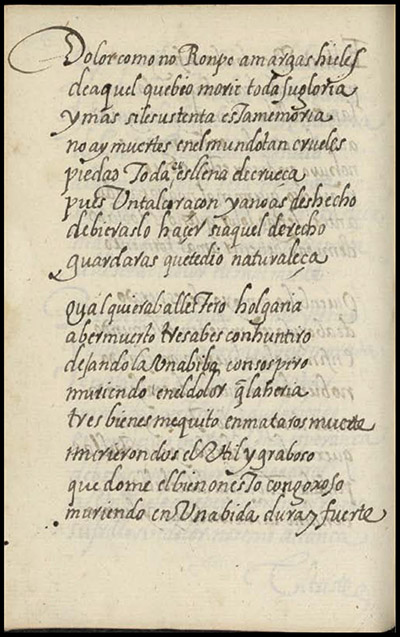 Dolor como no Ronpe amargas hieles
de aquel quebio morir toda su gloria
y mas si le sustenta esta memoria
no ay muertes en el mundo tan crueles
piedad Toda es llena de crueça
pues Un tal coraçon yanoas deshecho
debieraslo haçer si aquel derecho
guardaras quetedio naturaleça
qualquiera ballestero holgaria
aber muerto tres abes con hun tiro
dejando la Una biba con sospiro
muriendo en el dolor q̃ la heria
tres bienes me quito en mataros muerte
murieron dos el Util y graboso
que dome el bien onesto congoxoso
muriendo en Una bida dura y fuerte